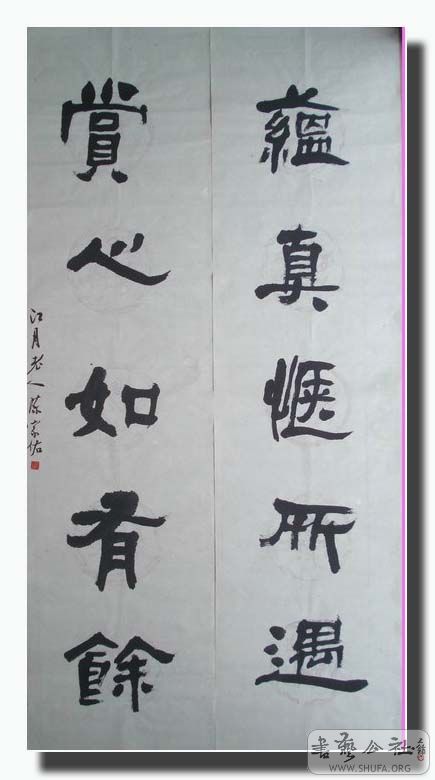 蘊真愜所遇
賞心如有餘
江月老人陈家佑
书艺公社
WWW.SHUFA.ORG